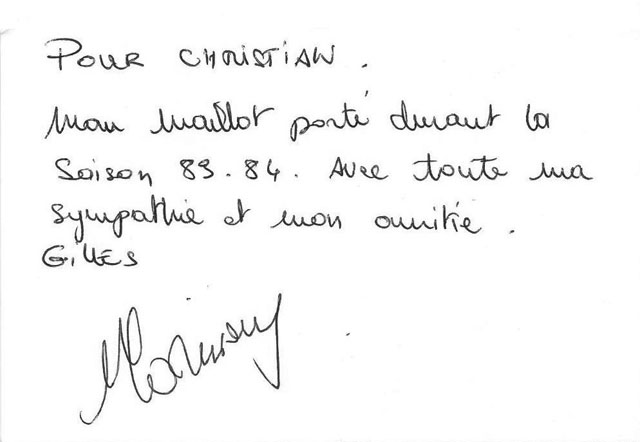 POUR CHRISTIAN.
Mon maillot porté durant la
saison 83.84. Avec toute ma
sympathie et mon amitié.
GILLES